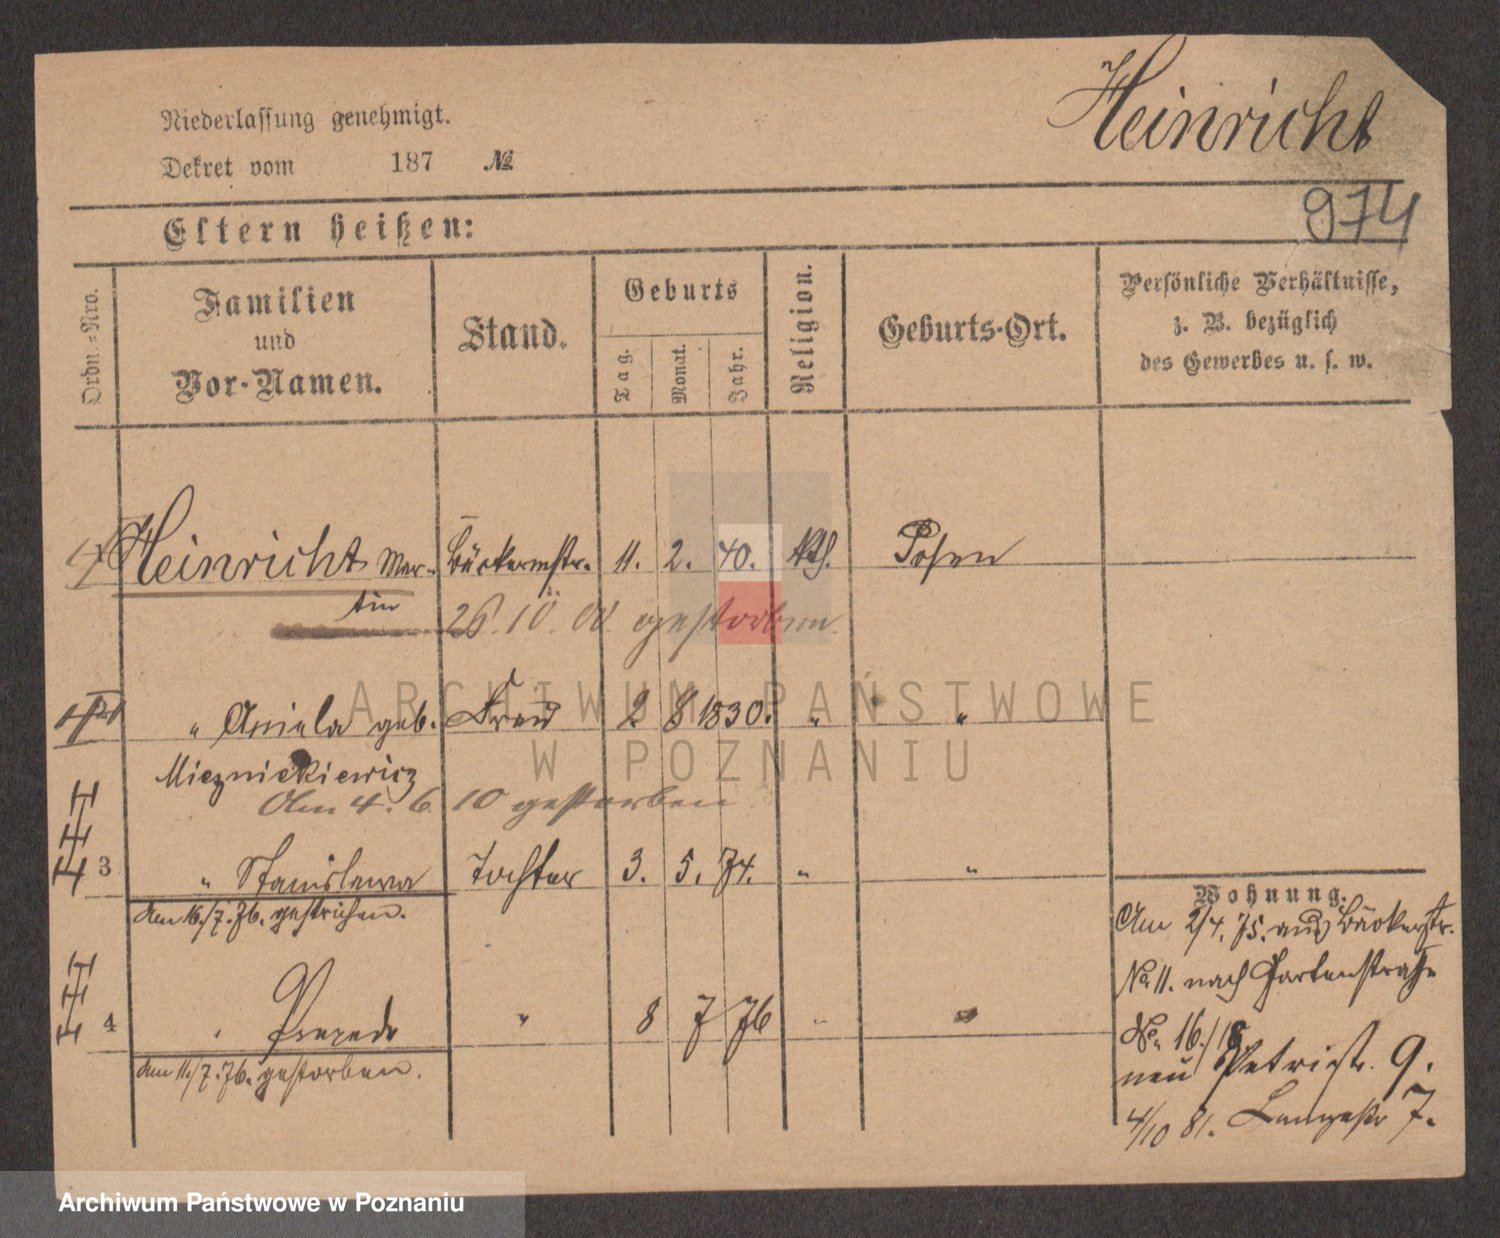 Heinricht
Niederlassung genehmigt.
Dekret vom 187 №
974
Eltern heißen:
Ordn.=Nro.
Familien
und
Vor-Namen.
Stand.
Geburts
Tag.
Monat.
Jahr.
Religion.
Geburts-Ort.
Persönliche Verhältnisse,
z. B. bezüglich
des Gewerbes u. s. w.
Heinricht Mar- Bäckermstr. 11. 2. 40. kth. Posen
tin
26. 10. 00 gestorben.
" Aniela geb. Frau 2 8 1830. " "
Mieznickiewicz
Am 4. 6. 10 gestorben
3 " Stanislawa Tochter 3. 5. 74. " "
Am 16./7. 76. gestrichen.
4 " " 8 7 76 " "
Am 11./7. 76. gestorben.
Wohnung.
Am 2/4. 75. aus Bäckerstr.
No 11. nach Gartenstraße
No. 16./18
neu Petristr. 9.
4/10 81. Langestr 7.
ARCHIWUM PAŃSTWOWE
W POZNANIU
Archiwum Państwowe w Poznaniu